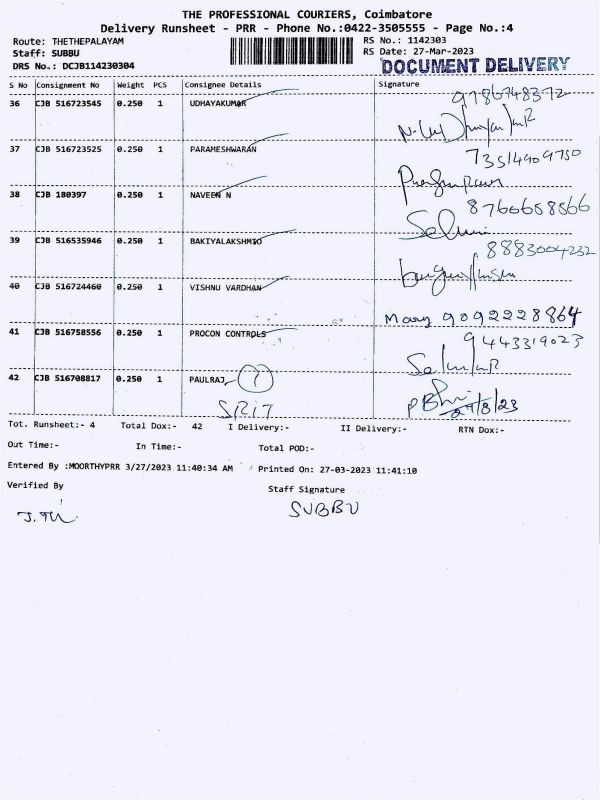 THE PROFESSIONAL COURIERS, Coimbatore
Delivery Runsheet - PRR - Phone No.:0422-3505555 - Page No.:4
Route: THETHEPALAYAM
RS No.: 1142303
Staff: SUBBU
RS Date: 27-Mar-2023
DRS No.: DCJB114230304
DOCUMENT DELIVERY
S No Consignment No Weight PCS Consignee Details Signature
9786748372
36 CJB 516723545 0.250 1 UDHAYAKUMAR
37 CJB 516723525 0.250 1 PARAMESHWARAN
73514909750
38 CJB 180397 0.250 1 NAVEEN N
8760658566
39 CJB 516535946 0.250 1 BAKIYALAKSHMIO
8883004232
40 CJB 516724460 0.250 1 VISHNU VARDHAN
Mary 9092228864
41 CJB 516758556 0.250 1 PROCON CONTROLS
9443319023
42 CJB 516708817 0.250 1 PAULRAJ
SRIT
Tot. Runsheet:- 4 Total Dox:- 42 I Delivery:- II Delivery:- RTN Dox:-
Out Time:- In Time:- Total POD:-
Entered By :MOORTHYPRR 3/27/2023 11:40:34 AM Printed On: 27-03-2023 11:41:10
Verified By Staff Signature
SUBBU